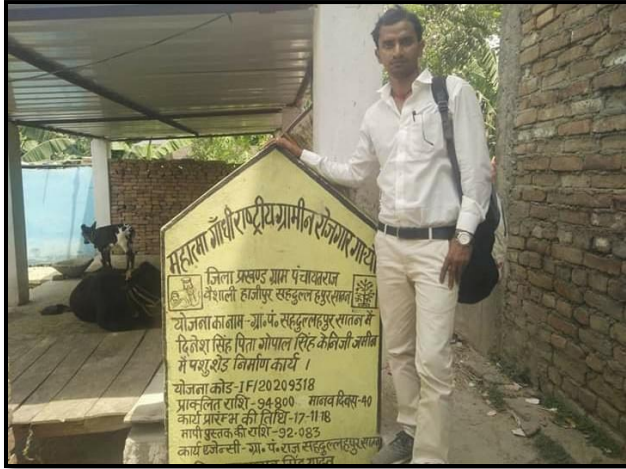 महात्मा गाँधी राष्ट्रीय ग्रामीन रोजगार गारंयो
जिला प्रखण्ड ग्राम पंचायतराज
वैशाली हाजीपुर सहदुल्लहपुर सातन
योजना का नाम-ग्रा॰पं॰ सहदुल्लहपुर सातन में
दिनेश सिंह पिता गोपाल सिंह के निजी जमीन
में पशु शेड निर्माण कार्य ।
योजना कोड-IF/20209318
प्राक्लित राशि-94800 मानव दिवस-40
कार्य प्रारम्भ की तिथि-17-11-18
मापी पुस्तक की राशि-92.083
कार्य एजेन्सी-ग्रा॰ पं॰ राज सहदुल्लहपुर सातन